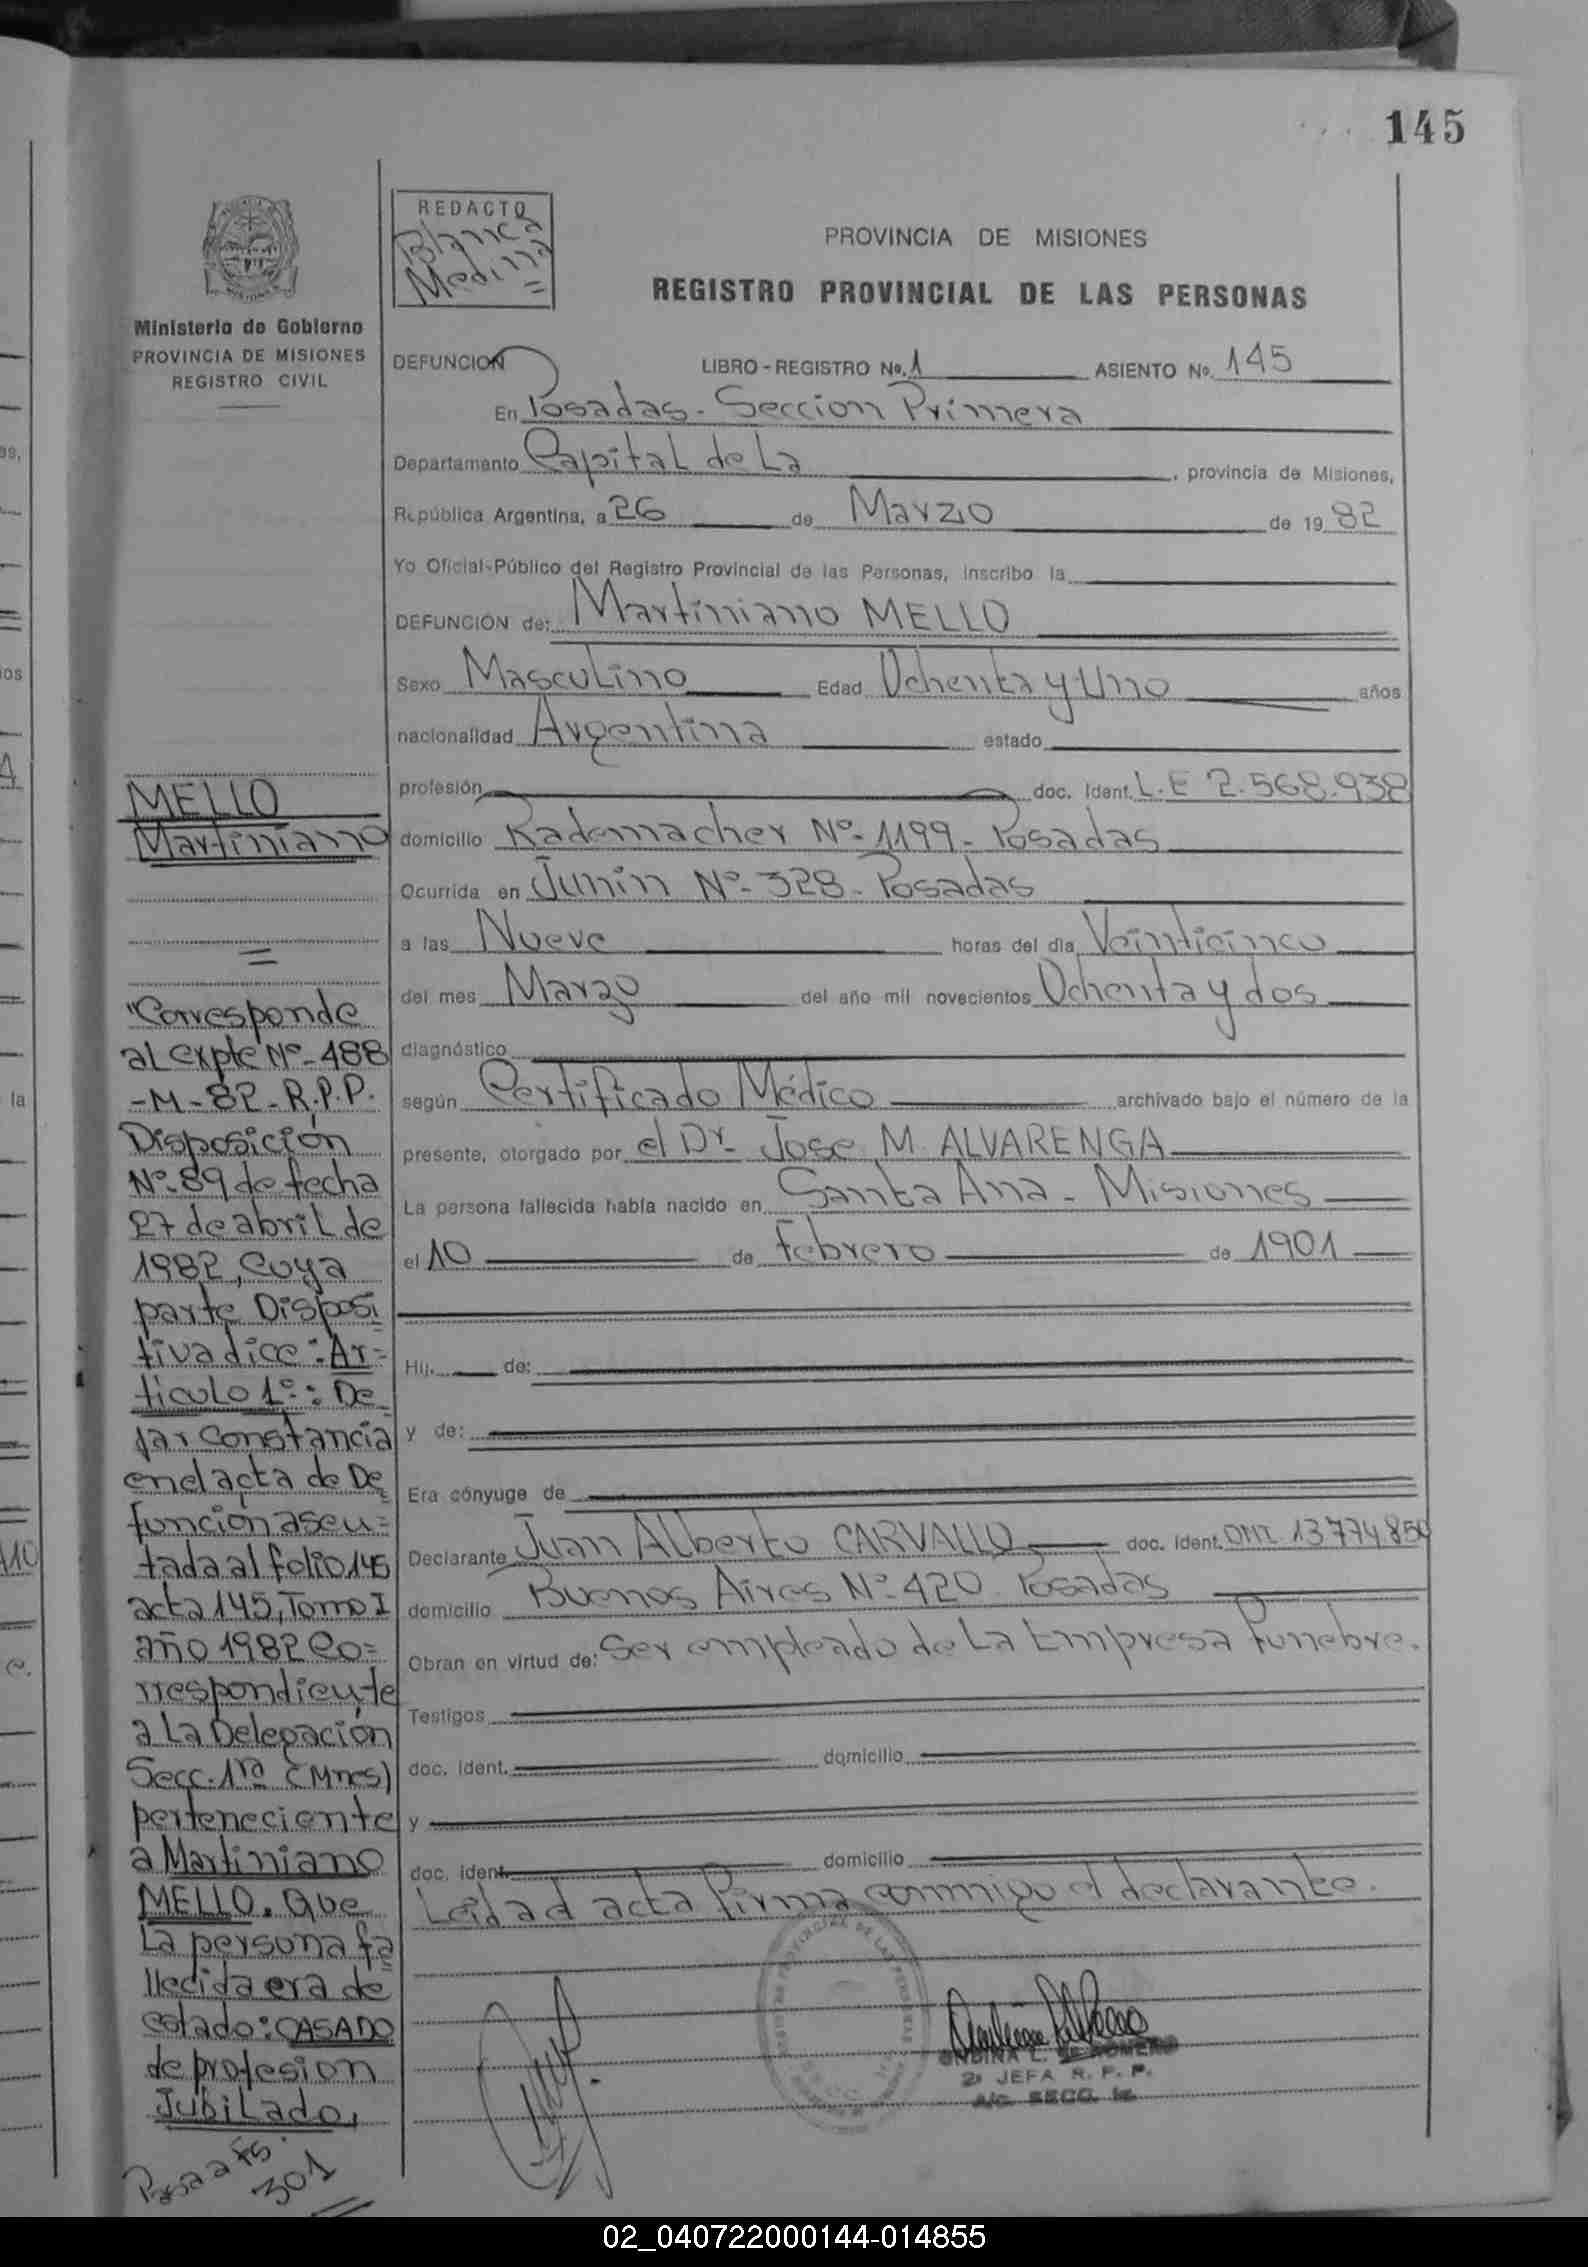 145
REDACTO
Blanca
Medina
=
PROVINCIA DE MISIONES
REGISTRO PROVINCIAL DE LAS PERSONAS
Ministerio de Gobierno
PROVINCIA DE MISIONES
REGISTRO CIVIL
DEFUNCION LIBRO - REGISTRO No. 1 ASIENTO No. 145
En Posadas - Seccion Primera
Departamento Capital de La, provincia de Misiones,
República Argentina, a 26 de Marzo de 1982
Yo Oficial-Público del Registro Provincial de las Personas, inscribo la
DEFUNCIÓN de: Martiniano MELLO
Sexo Masculino Edad Ochenta y Uno años
nacionalidad Argentina estado
profesión doc. Ident. L.E 2.568.938
domicilio Rademacher Nº 1199 - Posadas
Ocurrida en Junín Nº 328 - Posadas
a las Nueve horas del día Veinticinco
del mes Marzo del año mil novecientos Ochenta y dos
diagnóstico
según Certificado Médico archivado bajo el número de la
presente, otorgado por el Dr. Jose M. ALVARENGA
La persona fallecida había nacido en Santa Ana - Misiones
el 10 de febrero de 1901
Hij. de:
y de:
Era cónyuge de
Declarante Juan Alberto CARVALLO doc. Ident. DNI. 13774850
domicilio Buenos Aires Nº 420. Posadas
Obran en virtud de: Ser empleado de La Empresa Funebre.
Testigos
doc. ident. domicilio
y
doc. ident. domicilio
Leida el acta firma conmigo el declarante.
ONDINA L. DE ROMERO
2º JEFA R. P. P.
A/C. SECC. 1a.
MELLO
Martiniano
=
"Corresponde
al expte Nº 488
-M-82-R.P.P.
Disposición
Nº 89 de fecha
27 de abril de
1982, Cuya
parte Disposi
tiva dice: Ar=
ticulo 1º: De
jar Constancia
en el acta de De
función aseu=
tada al folio 145
acta 145, Tomo I
año 1982 Co=
rrespondiente
a La Delegación
Secc. 1ra (Mnes)
perteneciente
a Martiniano
MELLO. Que
La persona fa
llecida era de
estado: CASADO
de profesion
Jubilado,
Pasa a Fs.
301
02_040722000144-014855